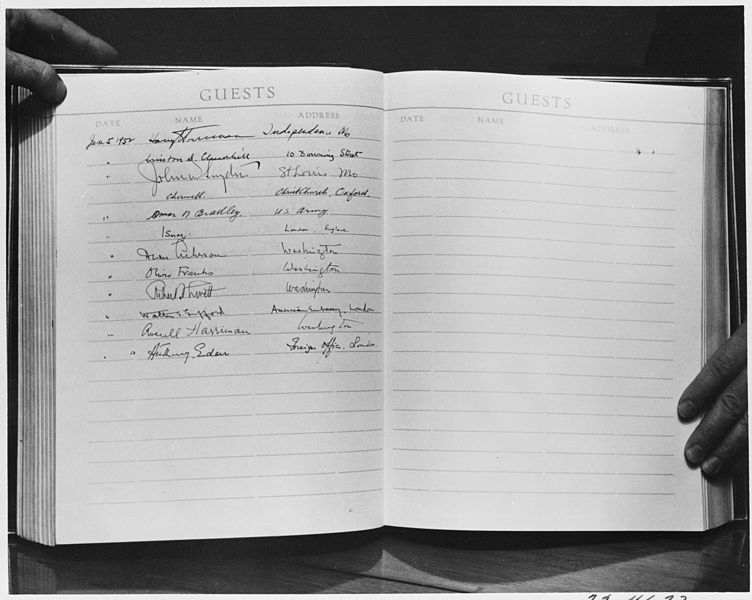 GUESTS
DATE NAME ADDRESS
Jan 5 1952 Harry S Truman Independence Mo
" Winston S. Churchill 10 Downing Street
" John W Snyder St Louis Mo
" Cherwell. Christchurch, Oxford.
" Omar N Bradley. U.S. Army
" Ismay London, England
" Dean Acheson Washington
" Oliver Franks Washington
" Robert A Lovett Washington
" Walter S. Gifford American Embassy, London
" Averell Harriman Washington
" " Anthony Eden Foreign Office, London.
GUESTS
DATE NAME ADDRESS